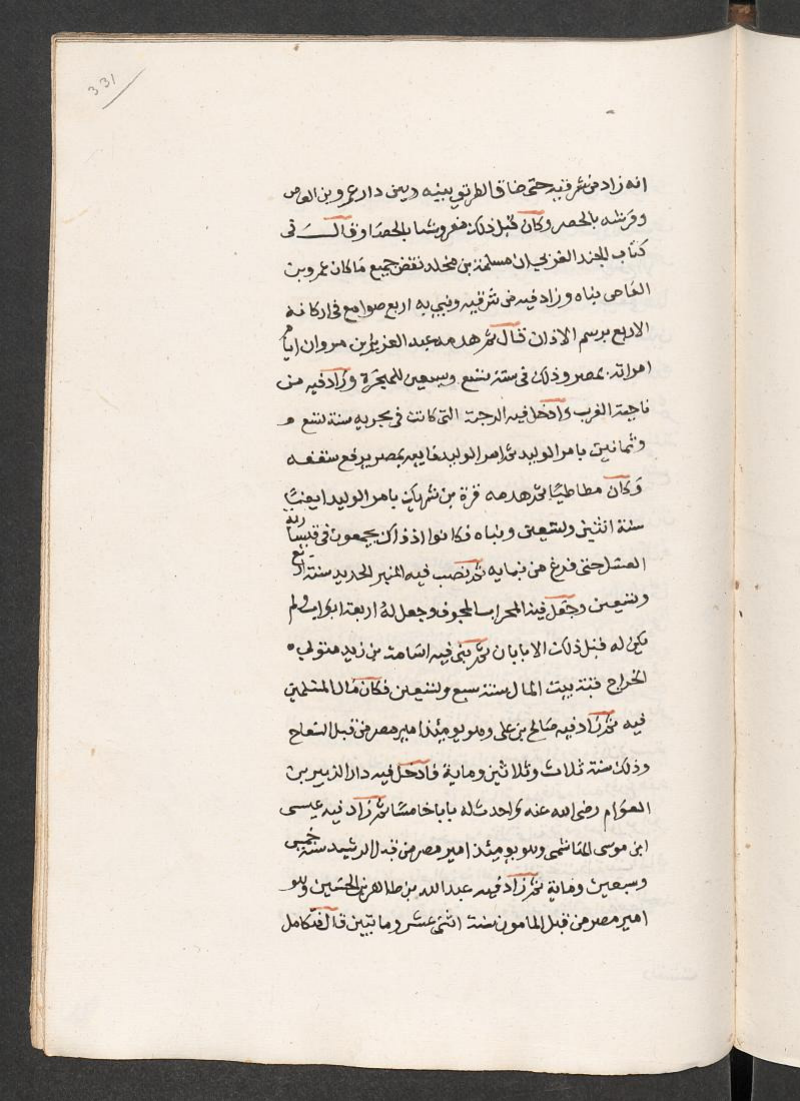 331
انه زاد من شرقيه حتى ضاق الطريق بينه وبين دار عمرو بن العاص
وفرشه بالحصر وكان قبل ذلك مفروشا بالحصبا وقال في
كتاب الجند الغربي ان مسلمة بن مخلد نقض جميع ما كان عمرو بن
العاصى بناه وزاد فيه من شرقيه وبنى به اربع صوامع في اركانه
الاربع برسم الاذان قال ثم هدمه عبد العزيز بن مروان ايام
امرته بمصر وذلك في سنة تسع وسبعين للهجرة وزاد فيه من
ناحية الغرب وادخل فيه الرحبة التي كانت في بحريه سنة تسع و
وثمانين بامر الوليد ثم امر الوليد نايبه بمصر برفع سقفه
وكان مطاطيا ثم هدمه قرة بن شريك بامر الوليد ايضا
سنة اثنين وتسعين وبناه فكانوا اذ ذاك يجمعون في قيسارية
العسل حتى فرغ من بنايه ثم نصب فيه المنبر الجديد سنة اربع
وتسعين وجعل فيه المحراب المجوف وجعل له اربعة ابواب ولم
يكن له قبل ذلك الا بابان ثم بنى فيه اسامة بن زيد متولي
الخراج قبة بيت المال سنة سبع وتسعين فكان مال المسلمين
فيه ثم زاد فيه صالح بن علي وهو يومئذ امير مصر من قبل السفاح
وذلك سنة ثلاث وثلاثين وماية فادخل فيه دار الزبير بن
العوام رضى الله عنه واحدث له بابا خامسا ثم زاد فيه عيسى
ابن موسى الهاشمى وهو يومئذ امير مصر من قبل الرشيد سنة خمس
وسبعين وماية ثم زاد فيه عبد الله بن طاهر بن الحسين وهو
امير مصر من قبل المامون سنة اثنى عشر ومايتين قال فتكامل